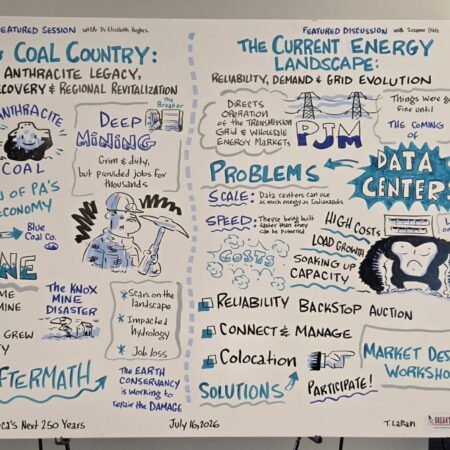 FEATURED SESSION with Dr Elizabeth Hughes
& COAL COUNTRY:
ANTHRACITE LEGACY,
RECOVERY & REGIONAL REVITALIZATION
ANTHRACITE
COAL
OF PA'S
ECONOMY
Blue
Coal Co.
DEEP
MINING
The
Breaker
Grim & dirty,
but provided jobs for
thousands
MINE
MINE
GREW
THE KNOX
MINE
DISASTER
* Scars on the
landscape
* Impacted
hydrology
* Job loss
AFTERMATH
THE EARTH
CONSERVANCY
IS WORKING TO
repair the DAMAGE
FEATURED DISCUSSION with Suzanne
THE CURRENT ENERGY
LANDSCAPE:
RELIABILITY, DEMAND & GRID EVOLUTION
DIRECTS
OPERATION
OF THE TRANSMISSION
GRID & WHOLESALE
ENERGY MARKETS
PJM
Things were
fine until
THE COMING
OF
DATA
CENTERS
PROBLEMS
SCALE: Data centers can use
as much energy as Indianapolis
SPEED: They're being built
faster than they
can be powered
COSTS
HIGH COSTS
LOAD GROWTH
SOAKING UP
CAPACITY
RELIABILITY BACKSTOP AUCTION
CONNECT & MANAGE
COLOCATION
SOLUTIONS
PARTICIPATE!
MARKET DES
WORKSHO
ca's Next 250 Years
July 16, 2026
T. LaBan